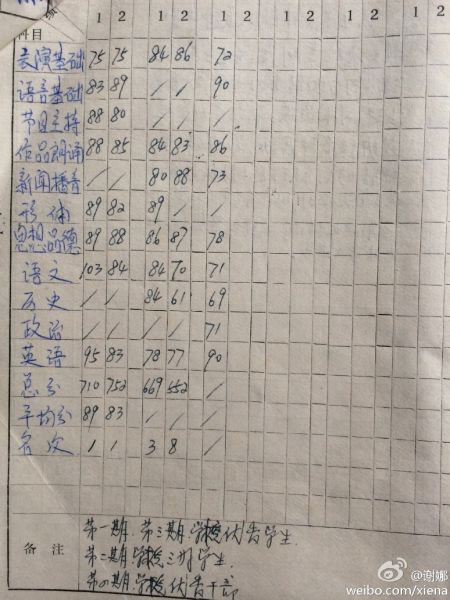 科目 1 2 1 2 1 2 1 2 1 2
表演基础 75 75 84 86 72
语言基础 83 89 / / 90
节目主持 88 80 / / /
作品朗诵 88 85 84 83 86
新闻播音 / / 80 88 73
形体 89 82 89 / /
思想品德 89 88 86 87 78
语文 103 84 84 70 71
历史 / / 84 61 69
政治 / / / / 71
英语 95 83 78 77 90
总分 710 752 669 552 /
平均分 89 83 / / /
名次 1 1 3 8 /
备注
第一期、第三期学校优秀学生.
第二期学校三好学生.
第四期学校优秀干部
@谢娜
weibo.com/xiena